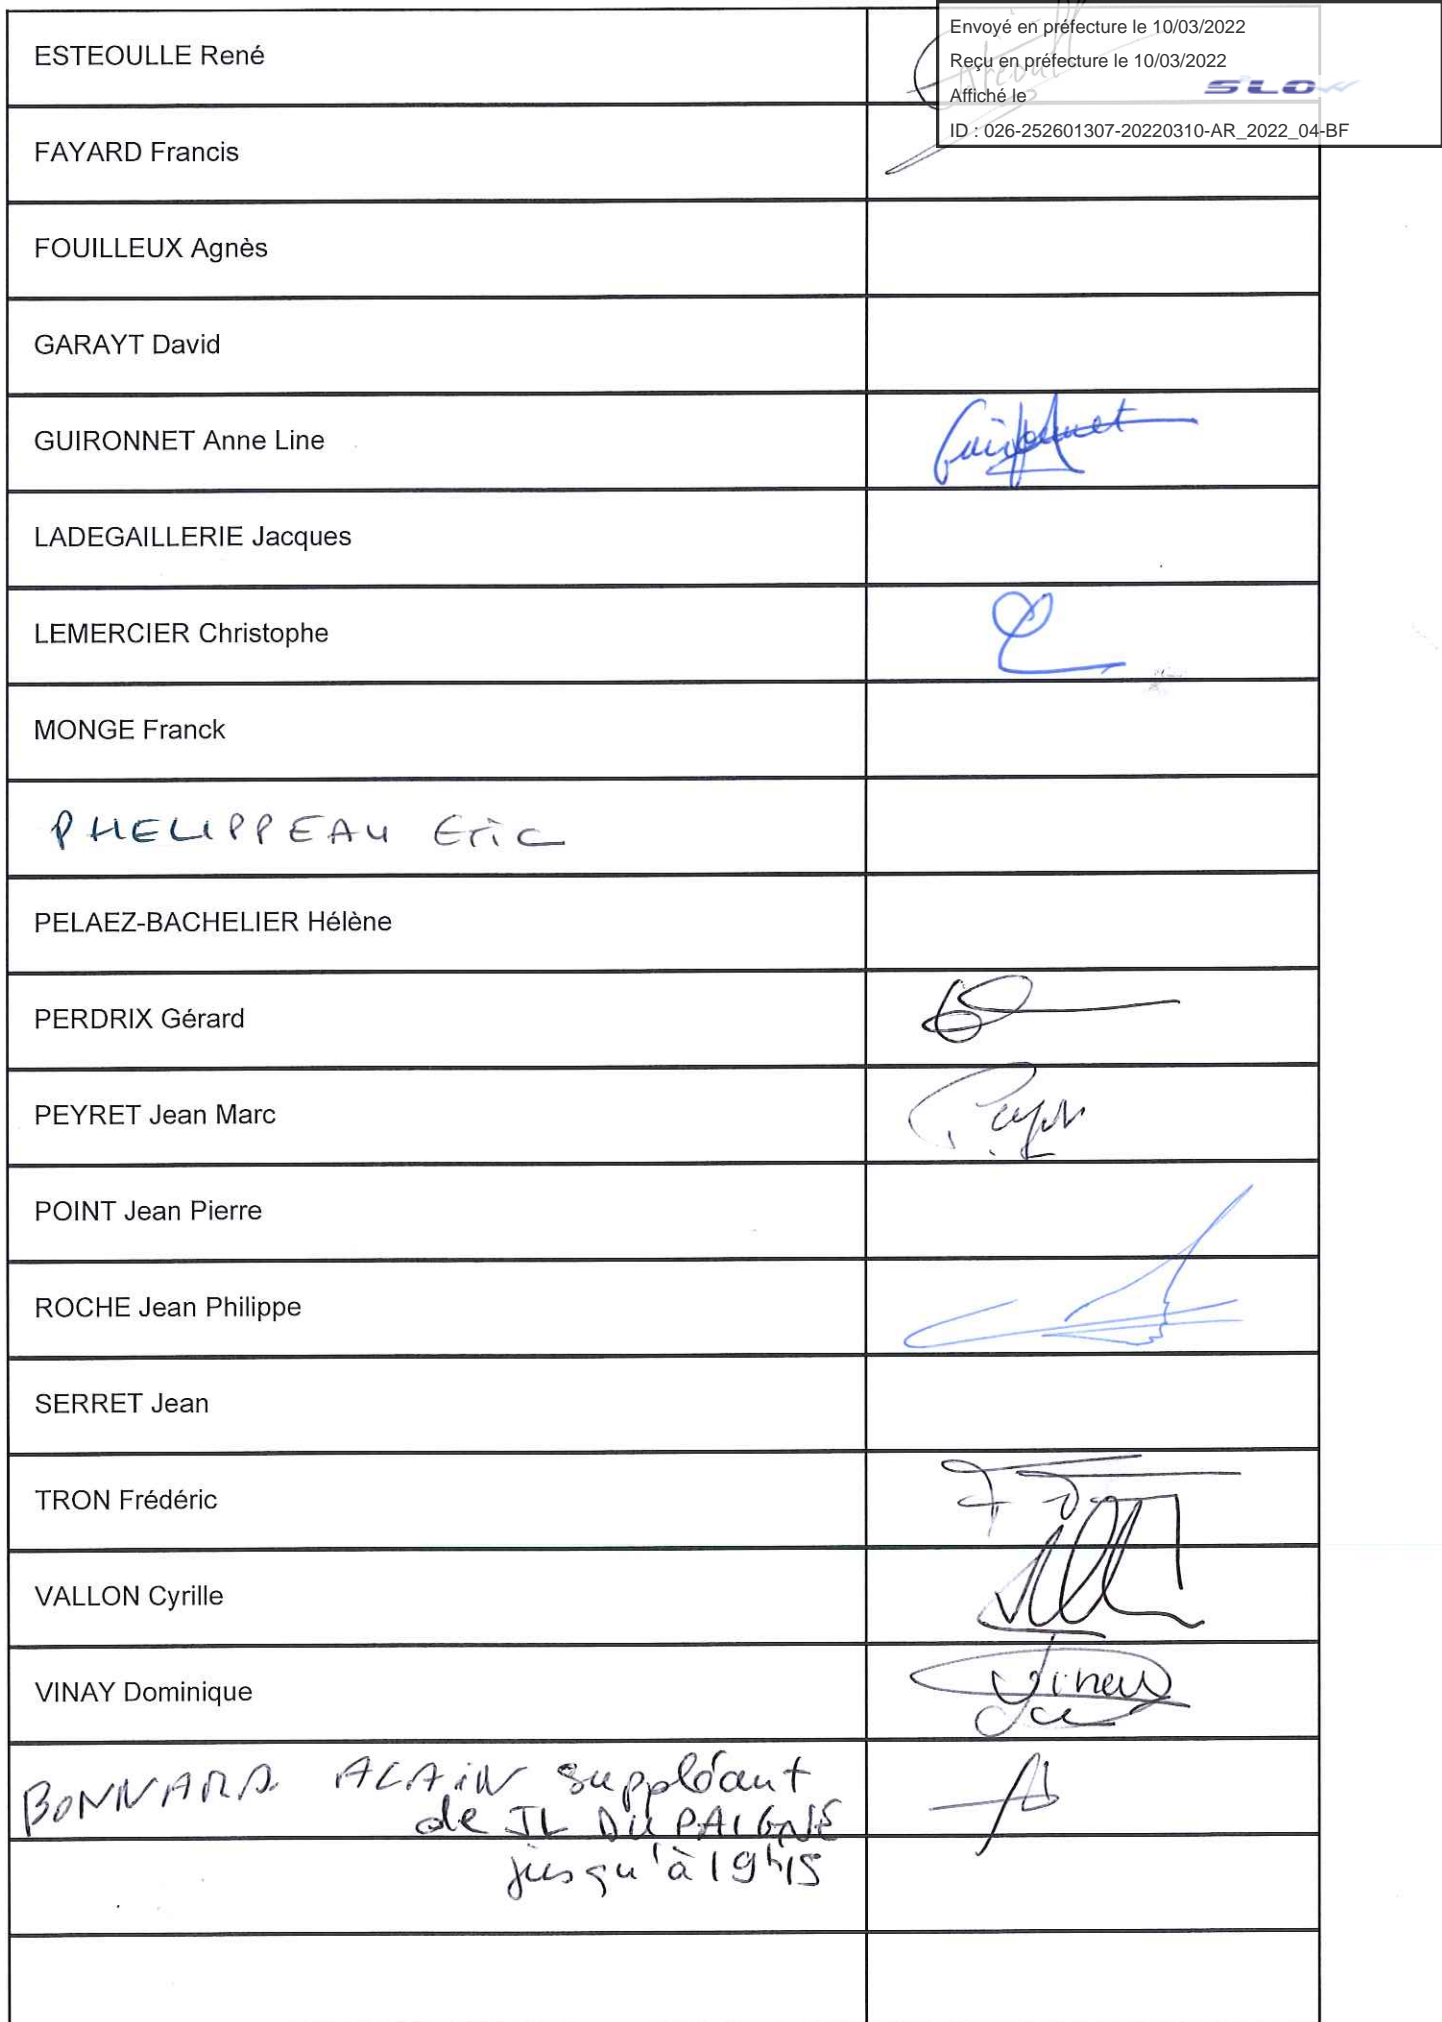 Envoyé en préfecture le 10/03/2022
Reçu en préfecture le 10/03/2022
Affiché le
SLOW
ID : 026-252601307-20220310-AR_2022_04-BF
ESTEOULLE René
FAYARD Francis
FOUILLEUX Agnès
GARAYT David
GUIRONNET Anne Line
LADEGAILLERIE Jacques
LEMERCIER Christophe
MONGE Franck
PHELIPPEAU Eric
PELAEZ-BACHELIER Hélène
PERDRIX Gérard
PEYRET Jean Marc
POINT Jean Pierre
ROCHE Jean Philippe
SERRET Jean
TRON Frédéric
VALLON Cyrille
VINAY Dominique
BONNARD ALAIN suppléant
de JL DUPAIGNE
jusqu'à 19h15